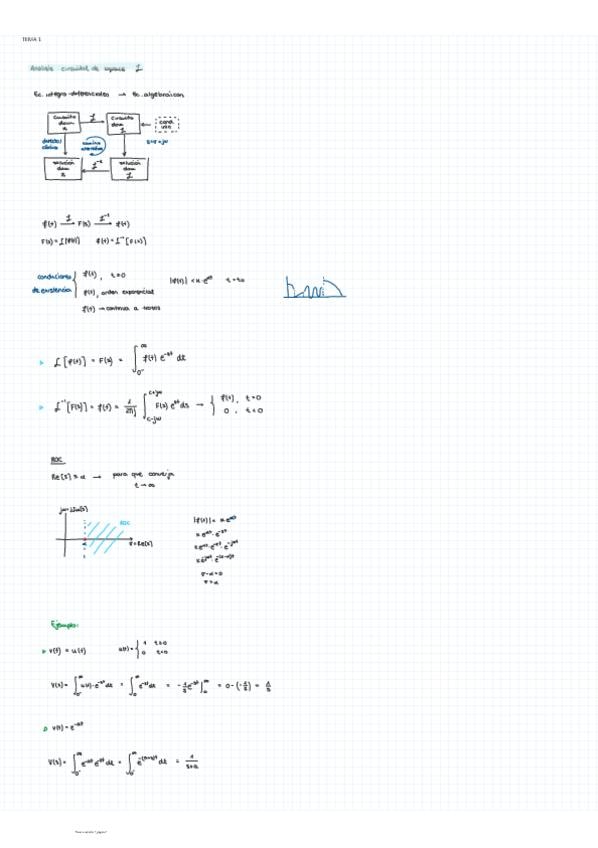 TEMA 1
Análisis circuital de Laplace ℒ
Ec. integro-diferenciales → Ec. algebraicas
Circuito dom t → ℒ → Circuito dom ℒ ← cond.
s = σ + jω
camino alternativo
solución dom t ← ℒ⁻¹ ← solución dom ℒ
f(t) →ℒ F(s) →ℒ⁻¹ f(t)
F(s) = ℒ[f(t)] f(t) = ℒ⁻¹[F(s)]
condiciones de existencia
f(t), t>0
f(t), orden exponencial
f(t) → continua a trozos
▸ ℒ[f(t)] = F(s) = ∫₀₋^∞ f(t) e^-st dt
▸ ℒ⁻¹[F(s)] = f(t) = 1/2πj ∫_c-jω^c+jω F(s) e^st ds → { f(t), t>0
0, t<0
ROC
Re[s] > α → para que converja
t→∞
jω = Im[s]
ROC
α
σ = Re[s]
Ejemplo:
▸ v(t) = u(t) u(t) = { 1 t≥0
0 t<0
V(s) = ∫₀₋^∞ u(t)·e^-st dt = ∫₀^∞ e^-st dt = -1/s e^-st |₀^∞ = 0-(-1/s) = 1/s
▸ v(t) = e^-at
V(s) = ∫₀₋^∞ e^-at e^-st dt = ∫₀^∞ e^-(s+a)t dt = 1/s+a